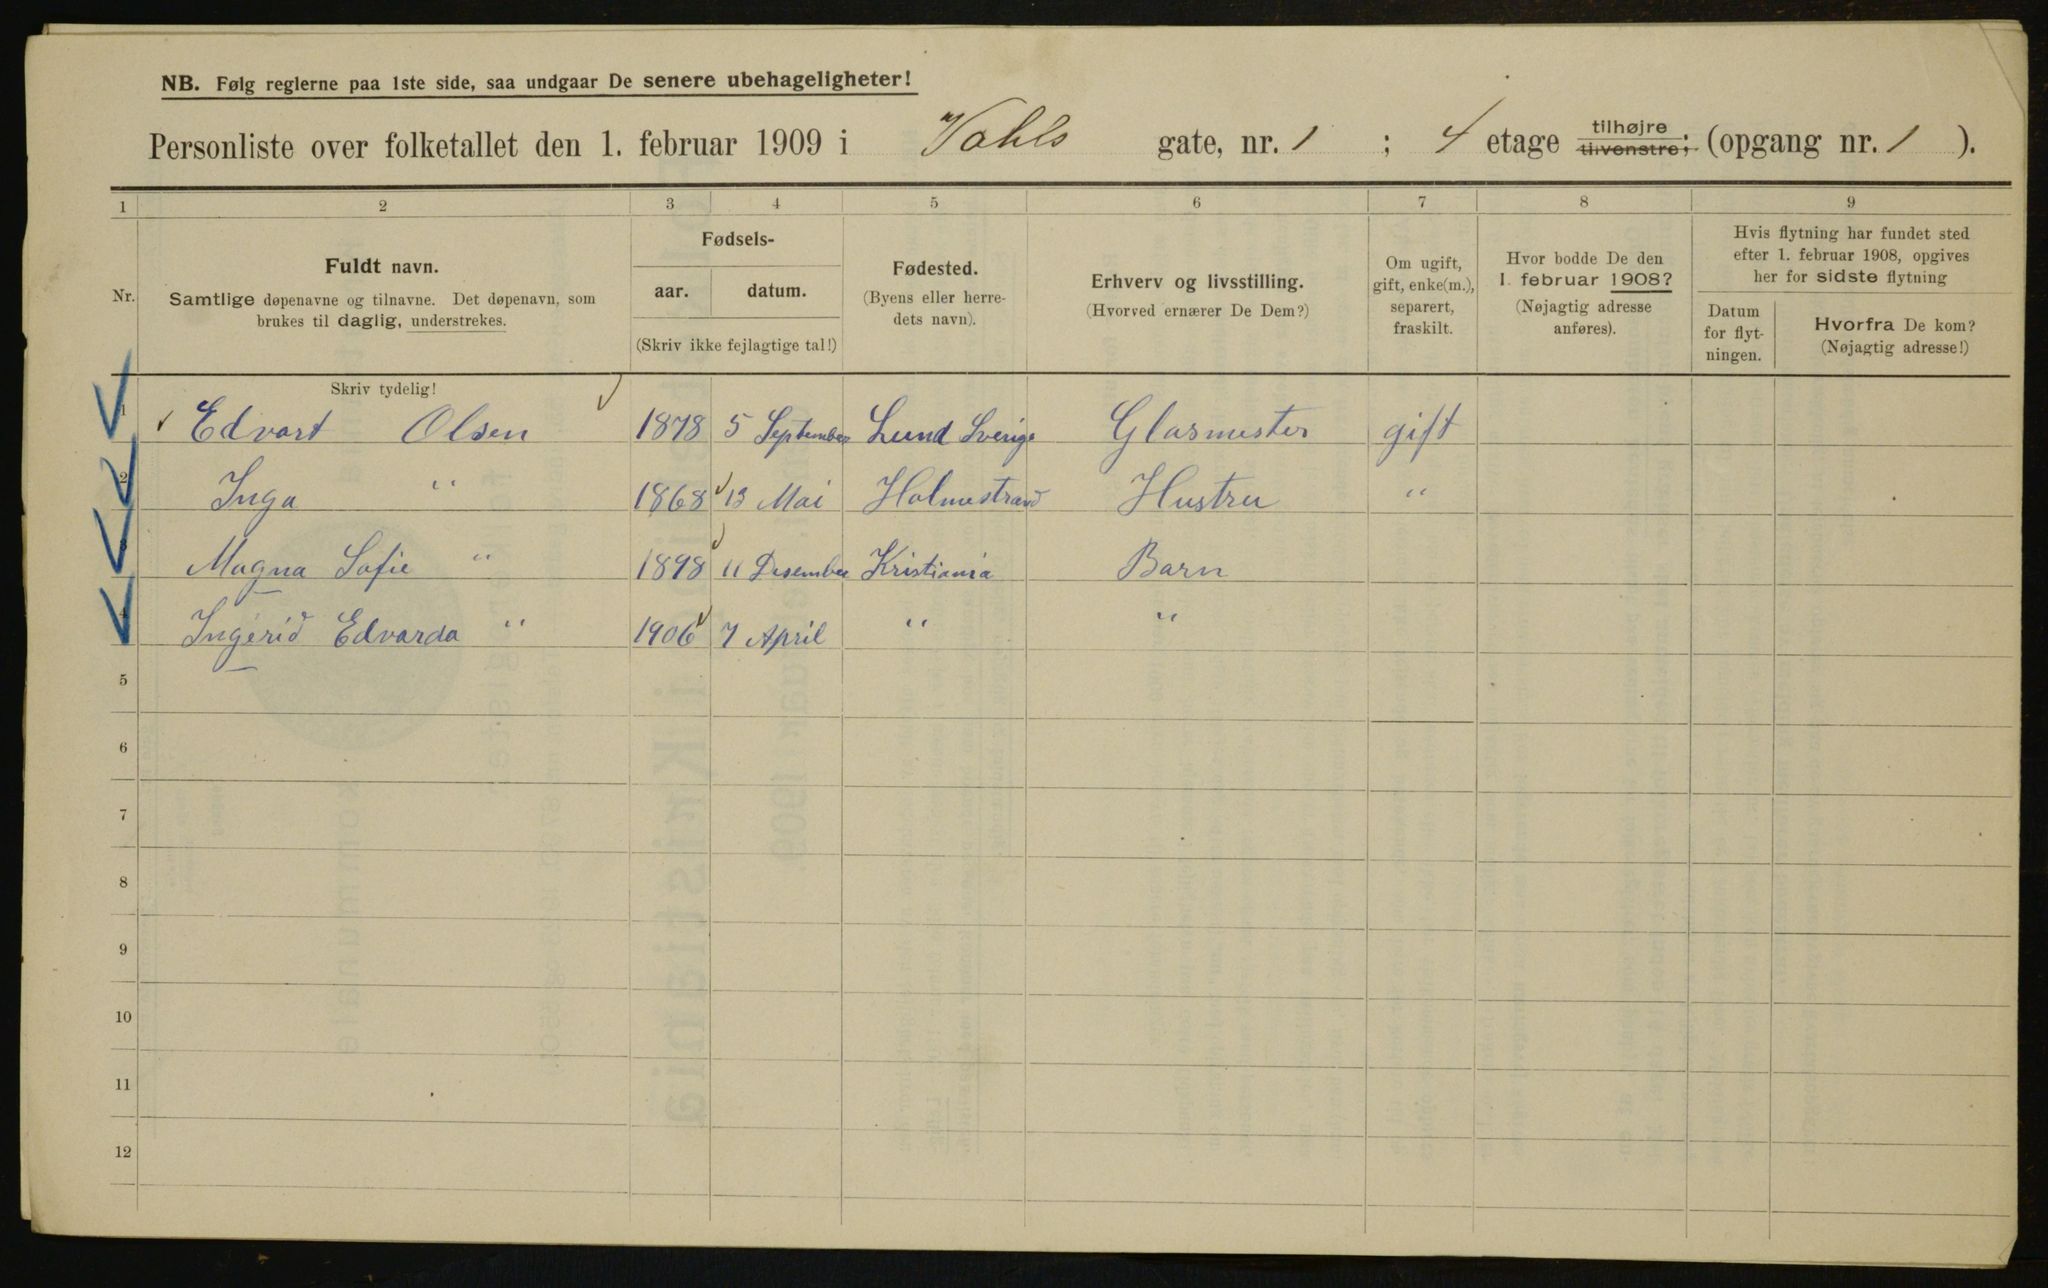 NB. Følg reglerne paa 1ste side, saa undgaar De senere ubehageligheter!
Personliste over folketallet den 1. februar 1909 i Vahls gate, nr. 1 ; 4 etage tilhøjre tilvenstre; (opgang nr. 1 ).
1 2 3 4 5 6 7 8 9
Nr.
Fuldt navn.
Samtlige døpenavne og tilnavne. Det døpenavn, som
brukes til daglig, understrekes.
Fødsels-
aar. datum.
(Skriv ikke fejlagtige tal!)
Fødested.
(Byens eller herre-
dets navn).
Erhverv og livsstilling.
(Hvorved ernærer De Dem?)
Om ugift,
gift, enke(m.),
separert,
fraskilt.
Hvor bodde De den
1. februar 1908?
(Nøjagtig adresse
anføres).
Hvis flytning har fundet sted
efter 1. februar 1908, opgives
her for sidste flytning
Datum
for flyt-
ningen.
Hvorfra De kom?
(Nøjagtig adresse!)
Skriv tydelig!
1 Edvart Olsen 1878 5 September Lund Sverige Glasmester gift
2 Inga " 1868 13 Mai Holmestrand Hustru "
3 Magna Sofie " 1898 11 Desember Kristiania Barn
4 Ingerid Edvarda " 1906 7 April " "
5
6
7
8
9
10
11
12